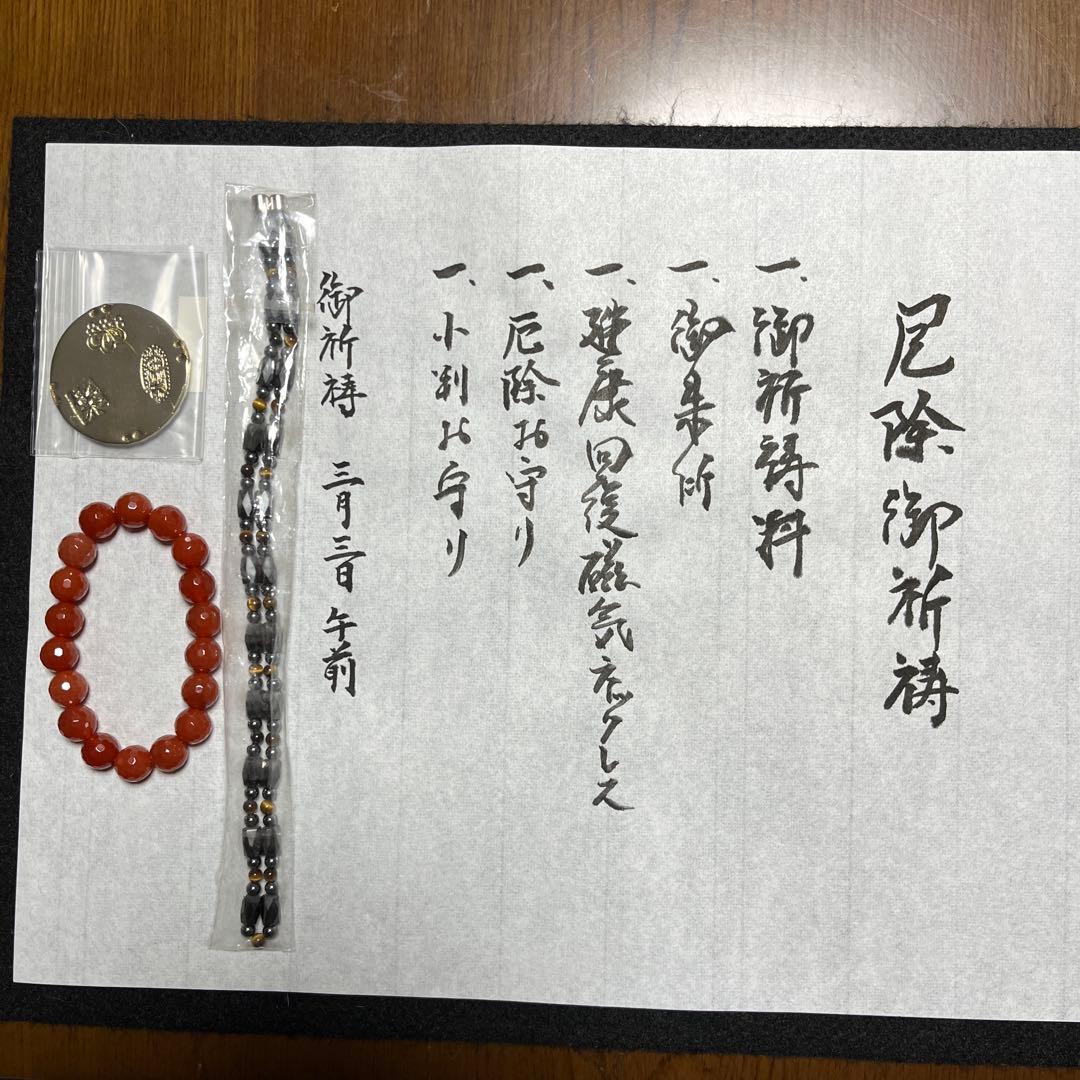 厄除御祈祷
一、御祈祷料
一、御朱印
一、健康回復磁気ネックレス
一、厄除お守り
一、小判お守り
御祈祷 三月三日 午前